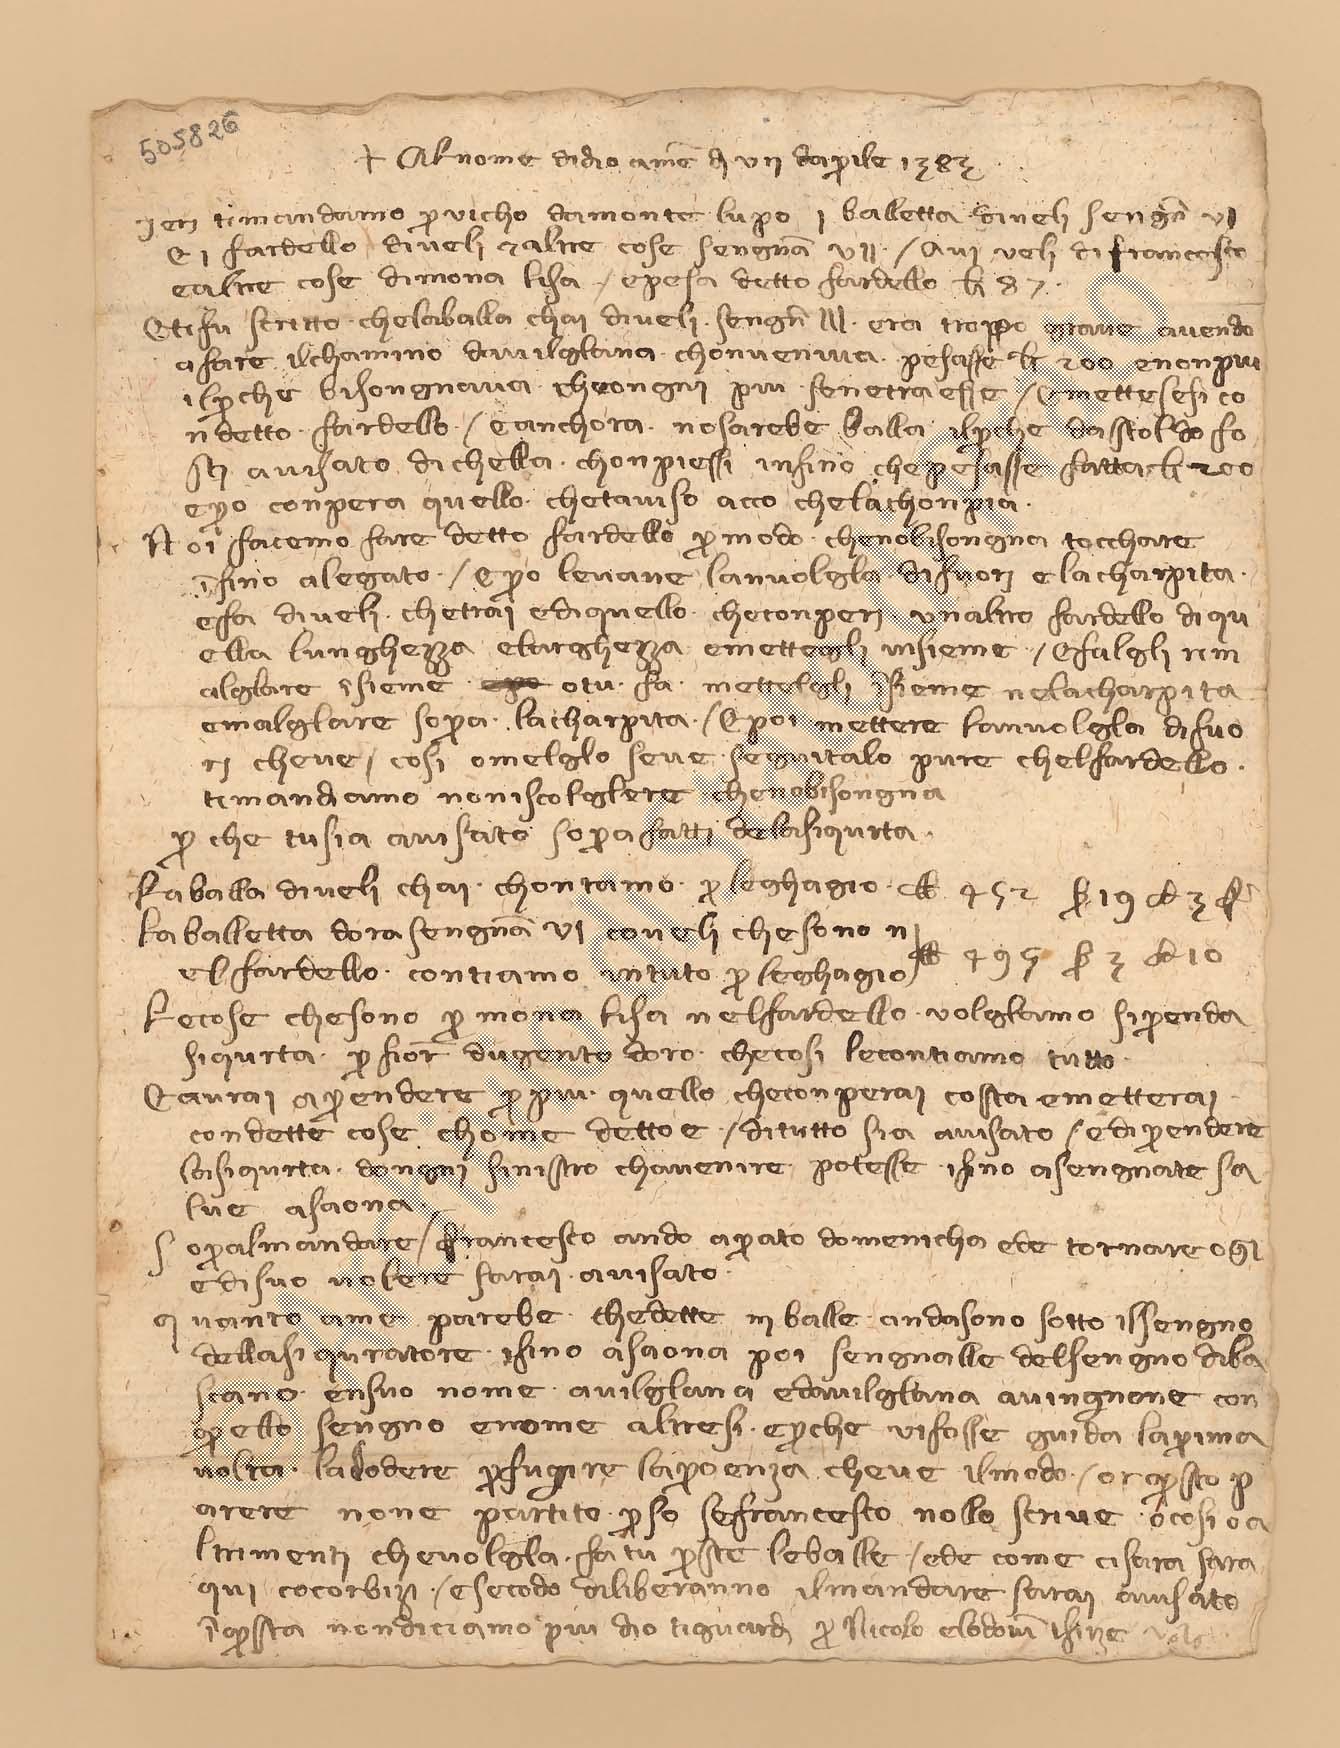 505826
+ Al nome di dio amē dj vıj dap̱rile 1383
Jerj timandamo p̱ vicho damonte lupo j balletta diveli sengn̄ vj
E j fardello diveli e altre cose sengnā vıj / Avj veli di francescho
e altre cose dimona lisa / e pesa detto fardello lb 87
E tifu scritto chelaballa chai diveli sengn̄ III era troppo grave avendo
afare ilchamino davilglana chonveniva pesasse lb 200 enonpiu
ilp̱che bisongnava cheongni piu senetraesse / Emettesesi co
ndetto fardello / E anchora nosarebe balla ilp̱che dasstoldo fo
sti avisato dichella chonpiessi infino chepesasse fatta lb 200
e p̱o conpera quello chetaviso acco chelachonpia
Noi facemo fare detto fardello p̱ modo chenobisongna tocchare
īfino alegato / E p̱o levane lanvolgla difuori e lacharpita
efa diveli chetrai ediquello checonperj unaltro fardello diqu
ella lunghezza elarghezza emettegli insieme / Efalgli rin
alglare īsieme otu fa mettelgli īsieme nelacharpita
emalglare sop̱a lacharpita / E poi mettere lanvolgla difuo
rj cheve / cosi omelglo seve seguitalo pure chelfardello
timandiamo noniscolglere chenobisongna
p̱ che tusia avisato sop̱a fatti delasiqurta
Laballa diveli chai chontamo p̱ leghagio lb 452 s 19 d 3 f
Laballetta dora sengnā vj coveli chesono nj
elfardello contiamo intuto p̱ leghagio lb 495 s 3 d 10
Lecose chesono p̱ mona lisa nelfardello volglamo sip̱enda
siqurta p̱ fior̄ dugento doro checosi lecontiamo tutto
E avraj ap̱endere p̱ piu quello checonperai cossta emetteraj
condette cose chome detto e / ditutto sia avisato / edip̱endere
lasiqurta dongni sinistro chavenire potesse ifino asengnate sa
lve asaona
Sop̱almandare / francescho ando ap̱ato domenicha ede tornare ogi
edisuo volere sarai avisato
quanto ame parebe chedette iij balle andasono sotto ilsengno
dellasiquratore ifino asaona poi sengnalle delsengno diba
scano ensuo nome avilglana edavilglana avingnone con
q̱ello sengno enome altresi ep̱che vifosse guida lap̱ima
volta lalodere p̱ fugire lap̱oenza cheve ilmodo / or q̱sto p
arere none partito p̱so sefrancescho nollo scrive ocosi oa
ltrimenti chevolgla fa tu p̱ste leballe / ede come cisara sara
qui cocorbizj / esecodo diliberanno ilmandare saraj avisato
īq̱ssta nondiciamo piu dio tiguardj p̱ Nicolo elodovi̅ ifirze